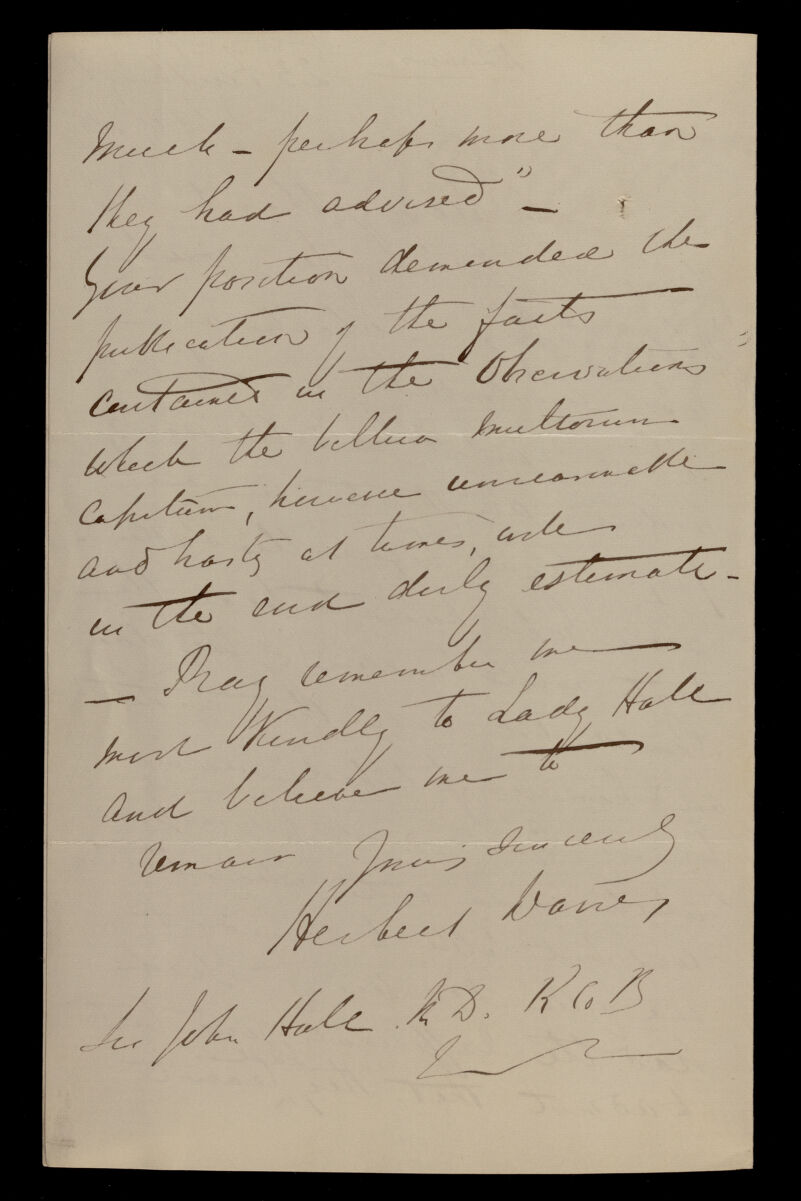 much – perhaps more than
they had advised" –
Your position demanded the
publication of the facts
contained in the Observations
which the bellua multorum
capitum, however unreasonable
and hasty at times, will
in the end duly estimate –
– Pray remember me
most kindly to Lady Hall
and believe me to
remain Yours sincerely
Herbert Davies
Sir John Hall M.D. K C B